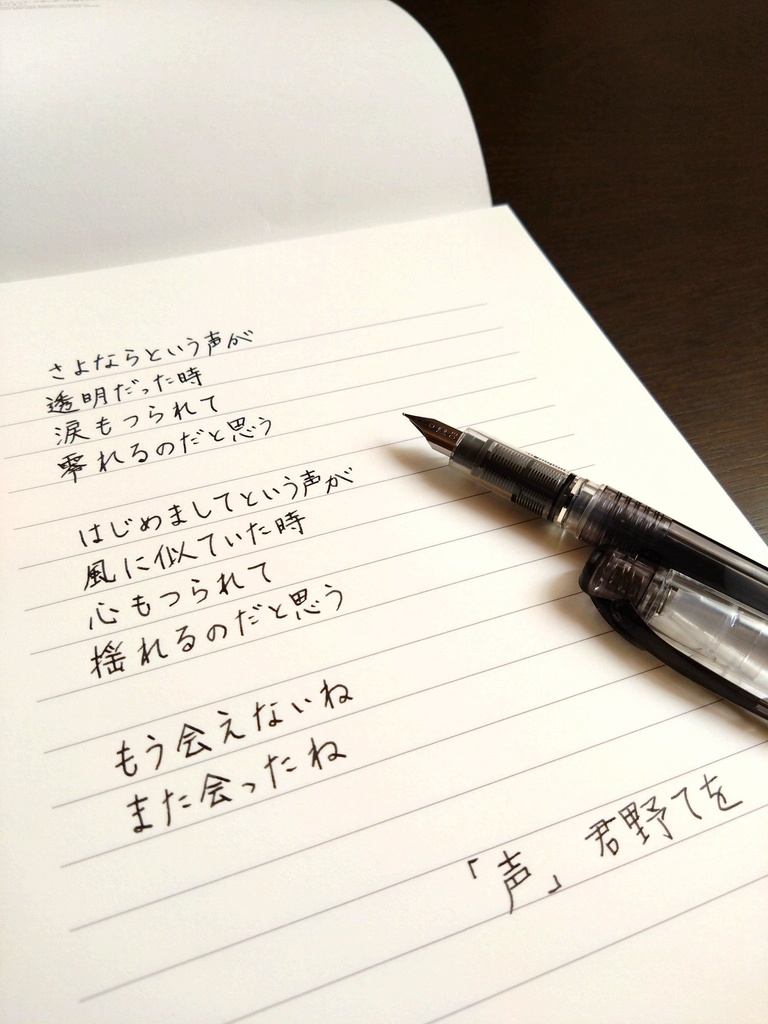 さよならという声が
透明だった時
涙もつられて
零れるのだと思う
はじめましてという声が
風に似ていた時
心もつられて
揺れるのだと思う
もう会えないね
また会ったね
「声」君野てを